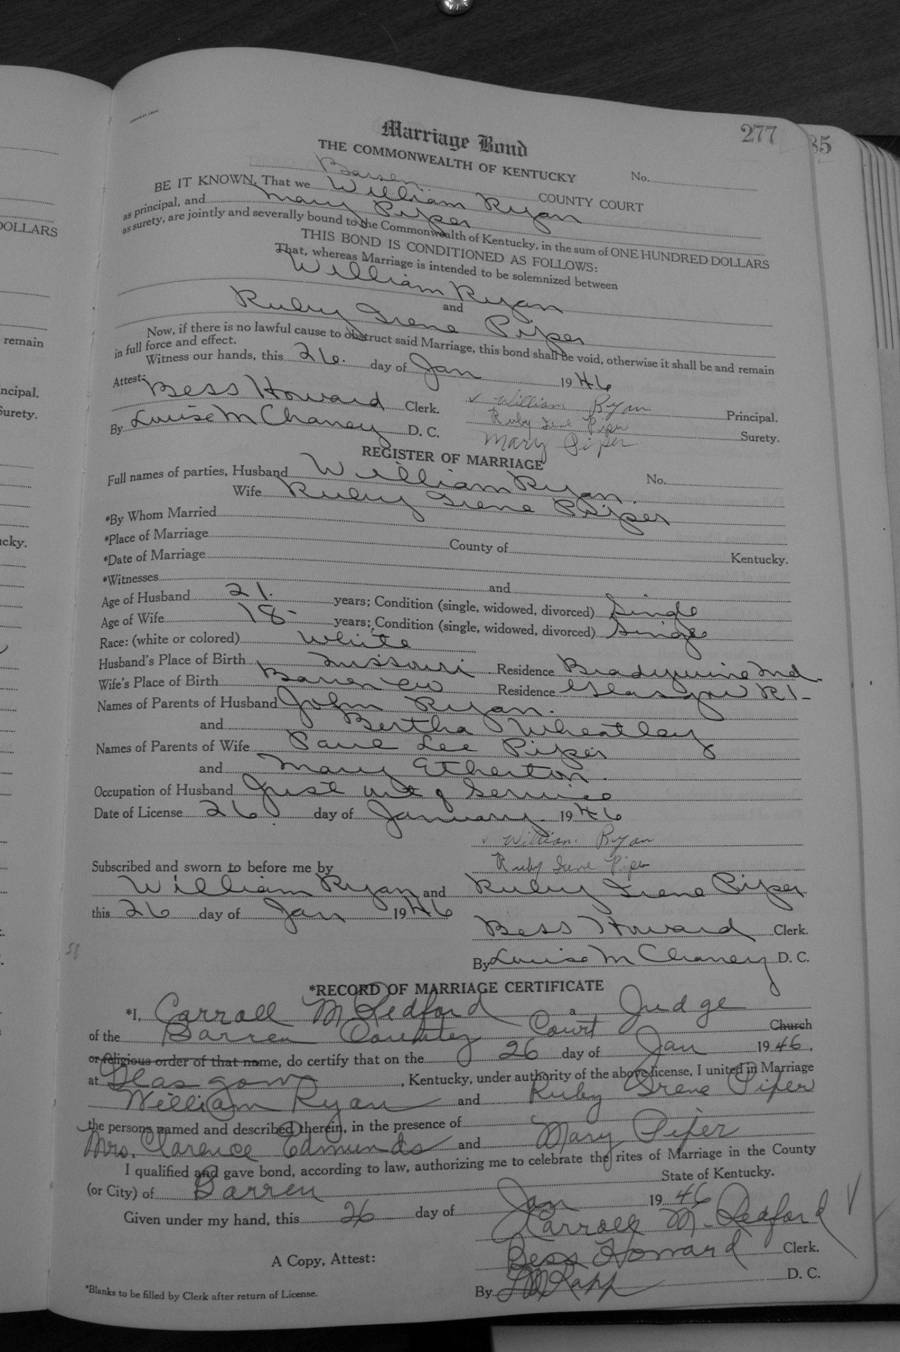 277
85
Marriage Bond
THE COMMONWEALTH OF KENTUCKY
No.
Barren COUNTY COURT
BE IT KNOWN, That we William Ryan
as principal, and Mary Piper
as surety, are jointly and severally bound to the Commonwealth of Kentucky, in the sum of ONE HUNDRED DOLLARS
THIS BOND IS CONDITIONED AS FOLLOWS:
That, whereas Marriage is intended to be solemnized between
William Ryan
and
Ruby Irene Piper
Now, if there is no lawful cause to obstruct said Marriage, this bond shall be void, otherwise it shall be and remain
in full force and effect.
Witness our hands, this 26. day of Jan 1946
Attest: Bess Howard Clerk. William Ryan Principal.
Ruby Irene Piper
By Louise McChaney D. C. Mary Piper Surety.
REGISTER OF MARRIAGE
Full names of parties, Husband William Ryan. No.
Wife Ruby Irene Piper
*By Whom Married
*Place of Marriage County of Kentucky.
*Date of Marriage
*Witnesses and
Age of Husband 21. years; Condition (single, widowed, divorced) Single
Age of Wife 18- years; Condition (single, widowed, divorced) Single
Race: (white or colored) White
Husband's Place of Birth Missouri Residence Bradywine Ind.
Wife's Place of Birth Barren Co Residence Glasgow R1-
Names of Parents of Husband John Ryan.
and Bertha Wheatley
Names of Parents of Wife Paul Lee Piper
and Mary Etherton.
Occupation of Husband Just out of Service
Date of License 26 day of January 1946
William Ryan
Ruby Irene Piper
Subscribed and sworn to before me by
William Ryan and Ruby Irene Piper
this 26 day of Jan 1946
Bess Howard Clerk.
By Louise McChaney D. C.
58
*RECORD OF MARRIAGE CERTIFICATE
*I, Carroll M Redford a Judge
of the Barren County Court Church
or religious order of that name, do certify that on the 26 day of Jan 1946,
at Glasgow, Kentucky, under authority of the above license, I united in Marriage
William Ryan and Ruby Irene Piper
the persons named and described therein, in the presence of
Mrs. Clarence Edmunds and Mary Piper
I qualified and gave bond, according to law, authorizing me to celebrate the rites of Marriage in the County
(or City) of Barren State of Kentucky.
Given under my hand, this 26 day of Jan 1946
Carroll M. Redford
A Copy, Attest: Bess Howard Clerk.
By D. C.
*Blanks to be filled by Clerk after return of License.
DOLLARS
remain
ncipal.
Surety.
cky.